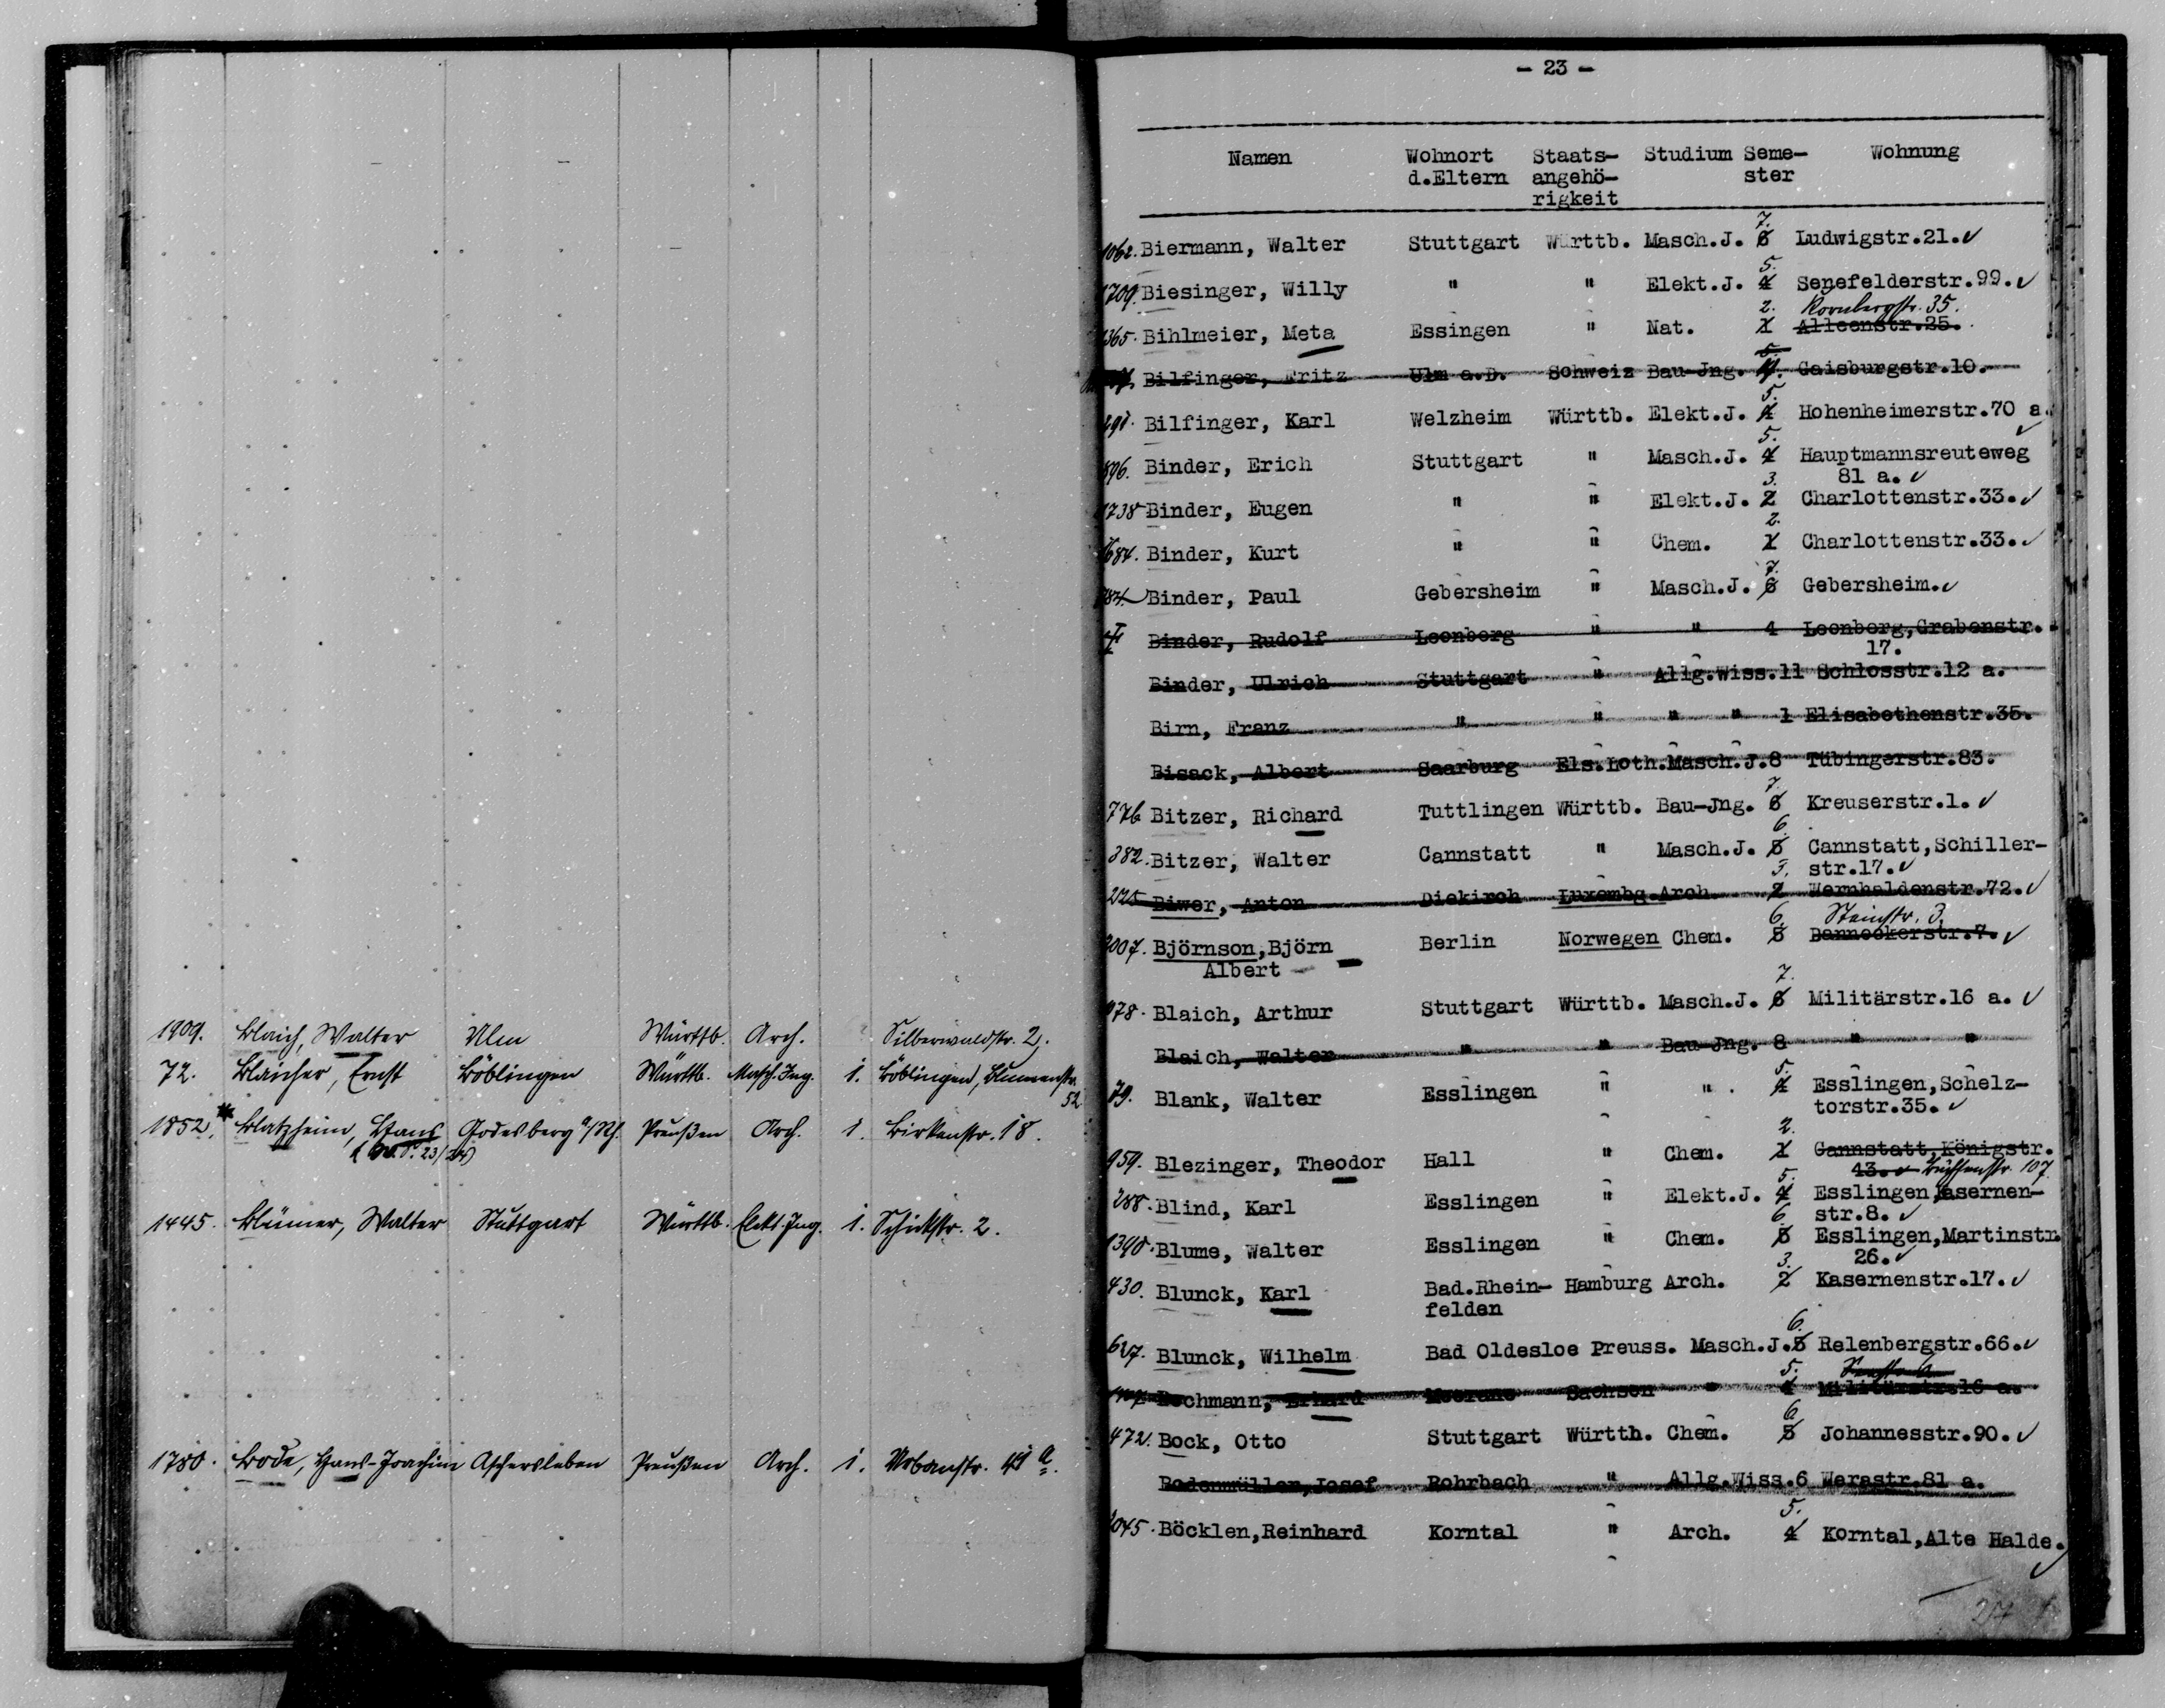 1909. Blaich, Walter Ulm Württb. Arch. Silberwaldstr. 2.
72. Blaicher, Ernst Böblingen Württb. Masch.Ing. 1. Böblingen, Blumenstr.
52
1852. * Blatzheim, Hans Godesberg a/Rh. Preußen Arch. 1. Birkenstr. 18.
1445. Blümer, Walter Stuttgart Württb. Elekt.Ing. 1. Schickstr. 2.
1780. Bode, Hans-Joachim Aschersleben Preußen Arch. 1. Urbanstr. 49 a.
- 23 -
Namen Wohnort Staats- Studium Seme- Wohnung
d.Eltern angehö- ster
rigkeit
7.
1062. Biermann, Walter Stuttgart Württb. Masch.J. 6 Ludwigstr.21.
5.
1709. Biesinger, Willy " " Elekt.J. 4 Senefelderstr.99.
2. Kornbergstr. 35.
1365. Bihlmeier, Meta Essingen " Nat. 1 Alleenstr.25.
5.
Bilfinger, Fritz Ulm a.D. Schweiz Bau-Jng. 4. Gaisburgstr.10.
5.
Bilfinger, Karl Welzheim Württb. Elekt.J. 4 Hohenheimerstr.70 a.
5.
896. Binder, Erich Stuttgart " Masch.J. 4 Hauptmannsreuteweg
3. 81 a.
1738 Binder, Eugen " " Elekt.J. 2 Charlottenstr.33.
2.
1684. Binder, Kurt " " Chem. 1 Charlottenstr.33.
7.
Binder, Paul Gebersheim " Masch.J. 6 Gebersheim.
Binder, Rudolf Leonberg " " 4 Leonberg,Grabenstr.
17.
Binder, Ulrich Stuttgart " Allg.Wiss.11 Schlosstr.12 a.
Birn, Franz " " " " 1 Elisabethenstr.35.
Bisack, Albert Saarburg Els.Loth.Masch.J.8 Tübingerstr.83.
7.
776 Bitzer, Richard Tuttlingen Württb. Bau-Jng. 6 Kreuserstr.1.
6.
382. Bitzer, Walter Cannstatt " Masch.J. 5 Cannstatt,Schiller-
3. str.17.
Biwer, Anton Diekirch Luxembg.Arch. 2 Wernhaldenstr.72.
6. Steinstr. 3.
2007. Björnson,Björn Berlin Norwegen Chem. 5 Danneckerstr.7.
Albert
7.
978. Blaich, Arthur Stuttgart Württb. Masch.J. 6 Militärstr.16 a.
Blaich, Walter " " Bau-Jng. 8 " "
5.
79. Blank, Walter Esslingen " " . 4 Esslingen,Schelz-
torstr.35.
2.
959. Blezinger, Theodor Hall " Chem. 1 Cannstatt,Königstr.
43. Büchsenstr. 107
5.
288. Blind, Karl Esslingen " Elekt.J. 4 Esslingen,Kasernen-
6. str.8.
1390. Blume, Walter Esslingen " Chem. 5 Esslingen,Martinstr.
3. 26.
430. Blunck, Karl Bad.Rhein- Hamburg Arch. 2 Kasernenstr.17.
felden
6.
627. Blunck, Wilhelm Bad Oldesloe Preuss. Masch.J.5 Relenbergstr.66.
5.
Bochmann, Erhard Meerane Sachsen " 4 Militärstr.16 a.
6
472. Bock, Otto Stuttgart Württb. Chem. 5 Johannesstr.90.
Bodenmüller,Josef Rohrbach " Allg.Wiss.6 Werastr.81 a.
5.
1045. Böcklen,Reinhard Korntal " Arch. 4 Korntal,Alte Halde.